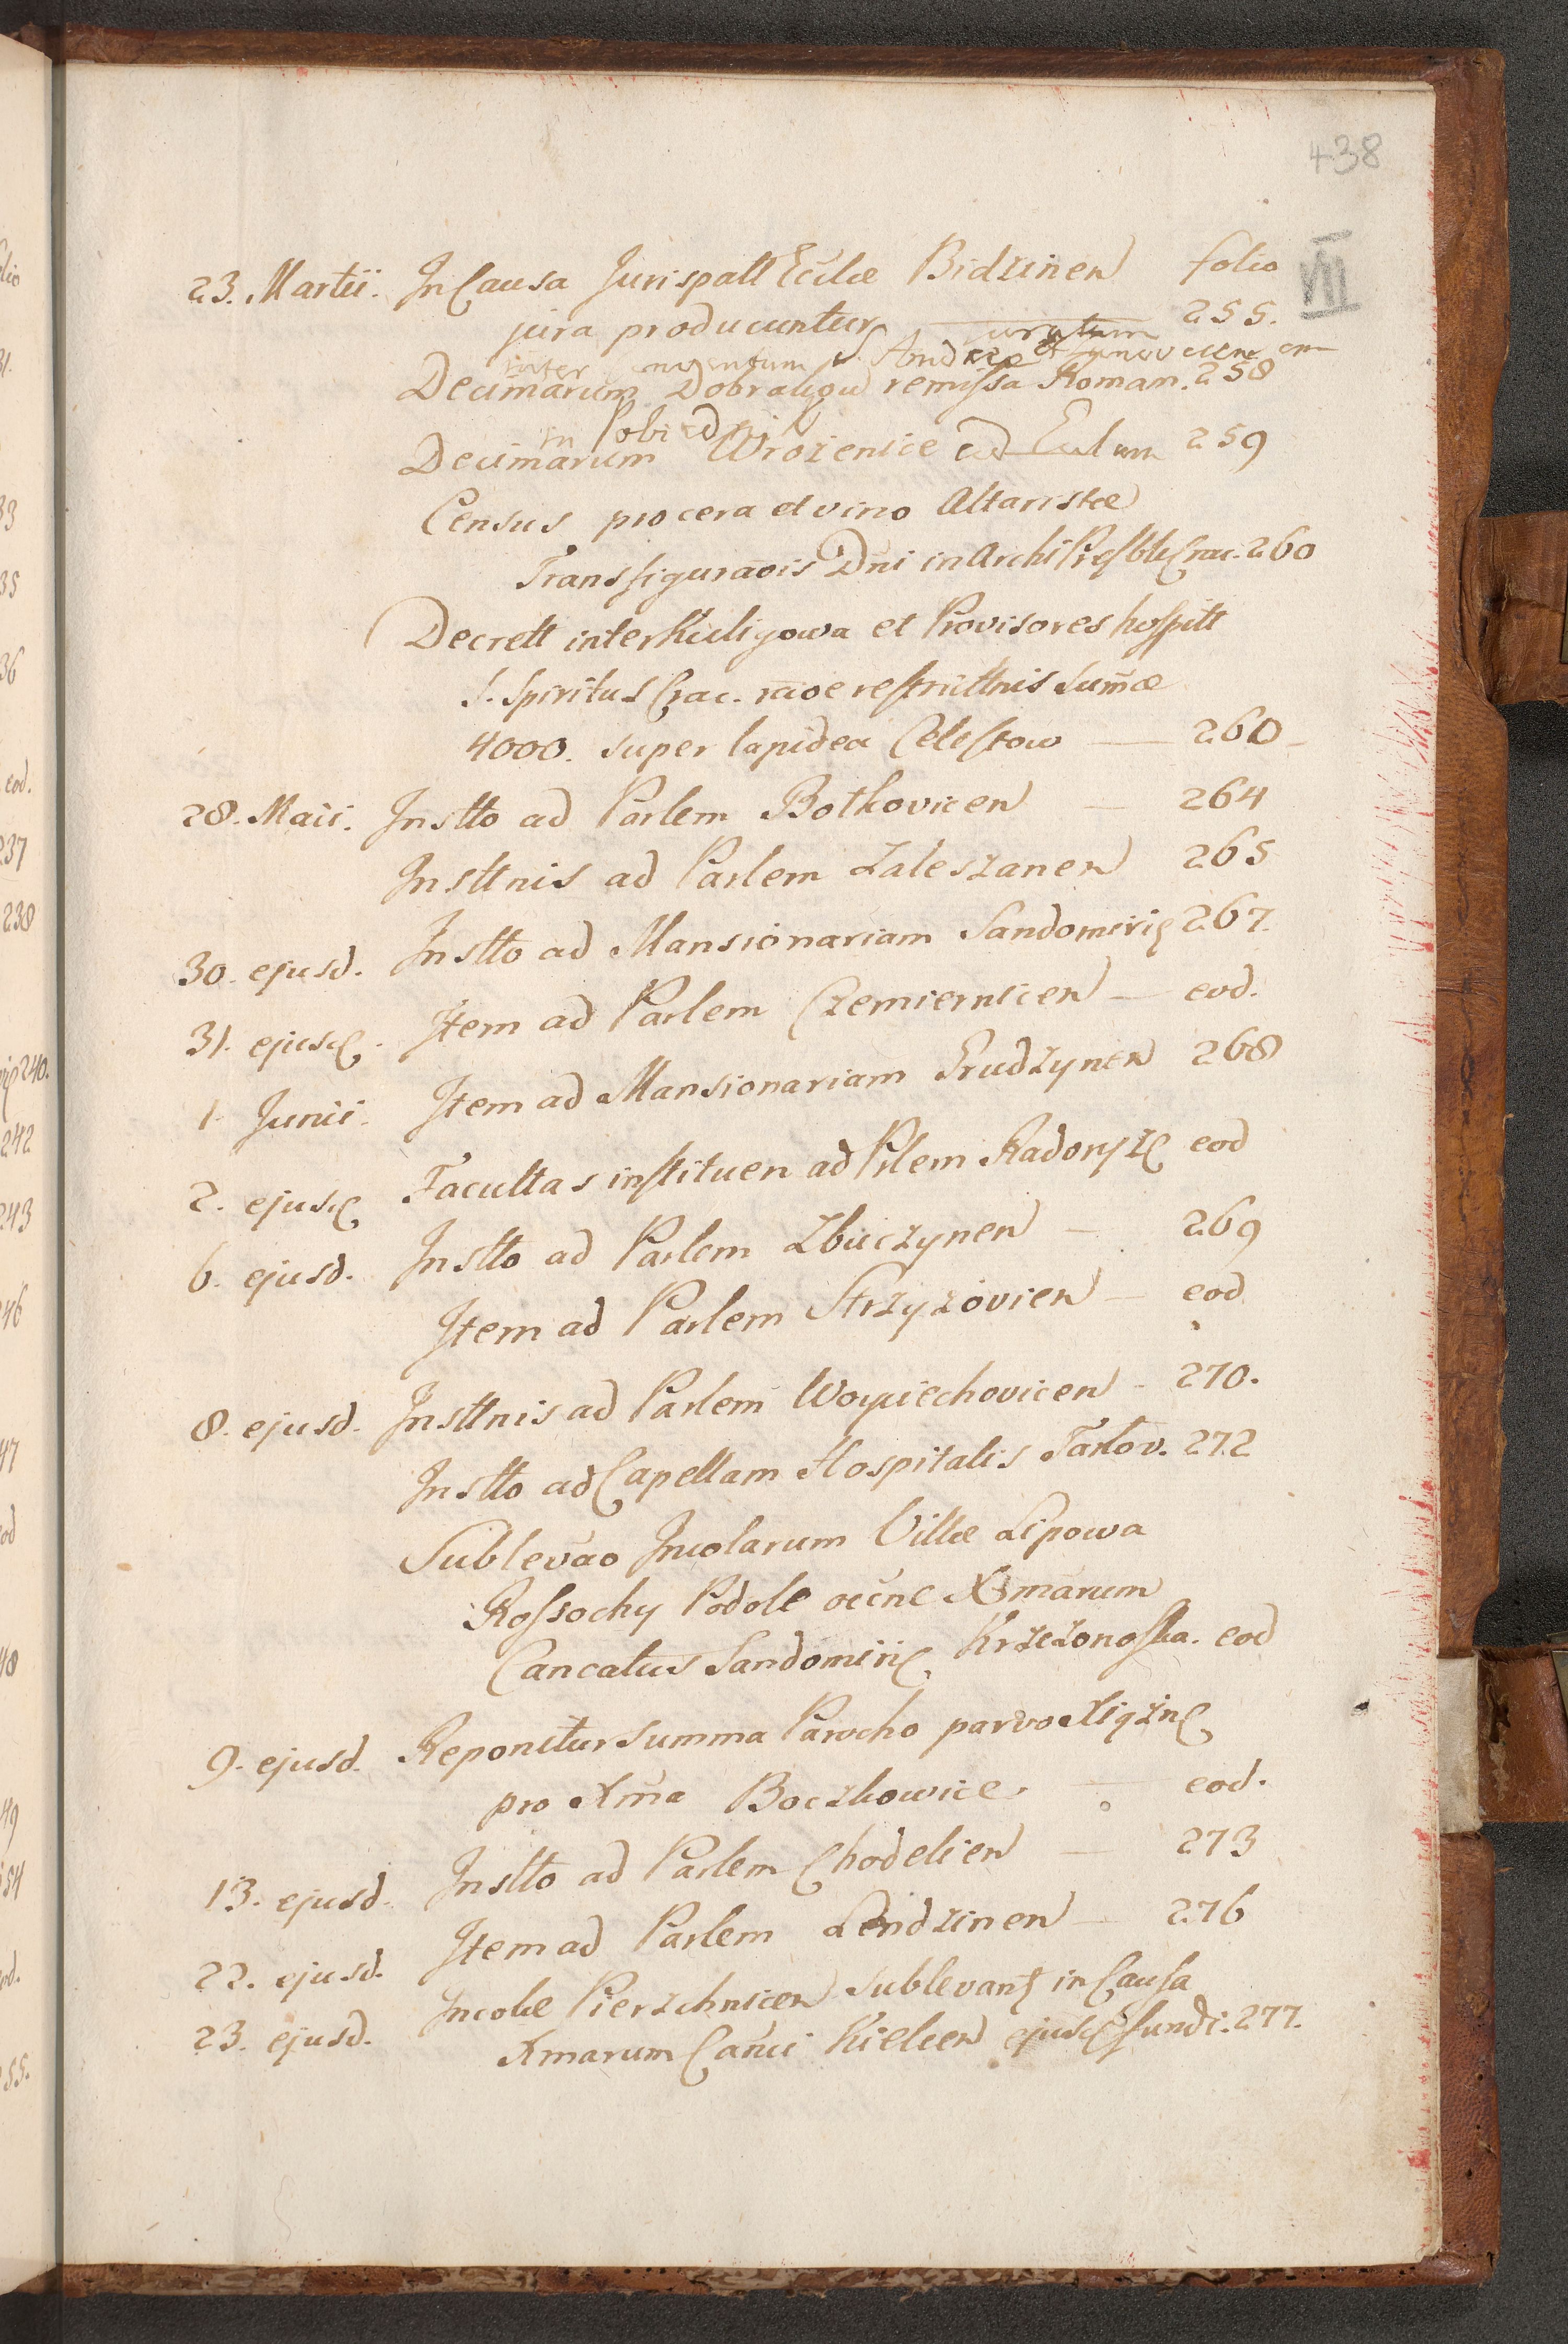 438
VIII
23. Martii. In Causa Jurispatt Eccliæ Bidzinen folio
jura producuntur 255.
inter S. Andreæ et
Decimarum Dobraugu remissa Roman. 258
in
Decimarum Wrozenice ad Eccl 259
Census pro cera et vino Altaristæ
Transfiguraōis Dni in Archi Presbtli Crac. 260
Decrett inter Kuligowa et Provisores hospitt
S. Spiritus Crac. raōe restrittnis Sum̄æ
4000. super lapidea Celestow — 260
28. Maii. Instto ad Parlem Botkovicen — 264
Insttnis ad Parlem Zaleszanen 265
30. ejusd. Instto ad Mansionariam Sandomirię 267.
31. ejusd. Item ad Parlem Czemiernicen — eod.
1. Junii. Item ad Mansionariam Prudzynen 268
2. ejusd Facultas instituen ad Plem Radoszyc eod
6. ejusd. Instto ad Parlem Zbuczynen — 269
Item ad Parlem Strzyzovien — eod
8. ejusd. Insttnis ad Parlem Woyciechovicen - 270.
Instto ad Capellam Hospitalis Tarłov. 272
Sublevāo Incolarum Villæ Lipowa
Rossochy Podole occne Xmarum
Cancatus Sandomirię Krzezonoska. eod
9. ejusd. Reponitur Summa Parocho parvo Xiązne
pro Xma Boczkowice. — eod.
13. ejusd. Instto ad Parlem Chodelien — 273
22. ejusd. Item ad Parlem Lendzinen — 276
23. ejusd. Incolæ Pierzchnicen Sublevant in Causa
Xmarum Canci Kielcen ejusd fundi. 277.